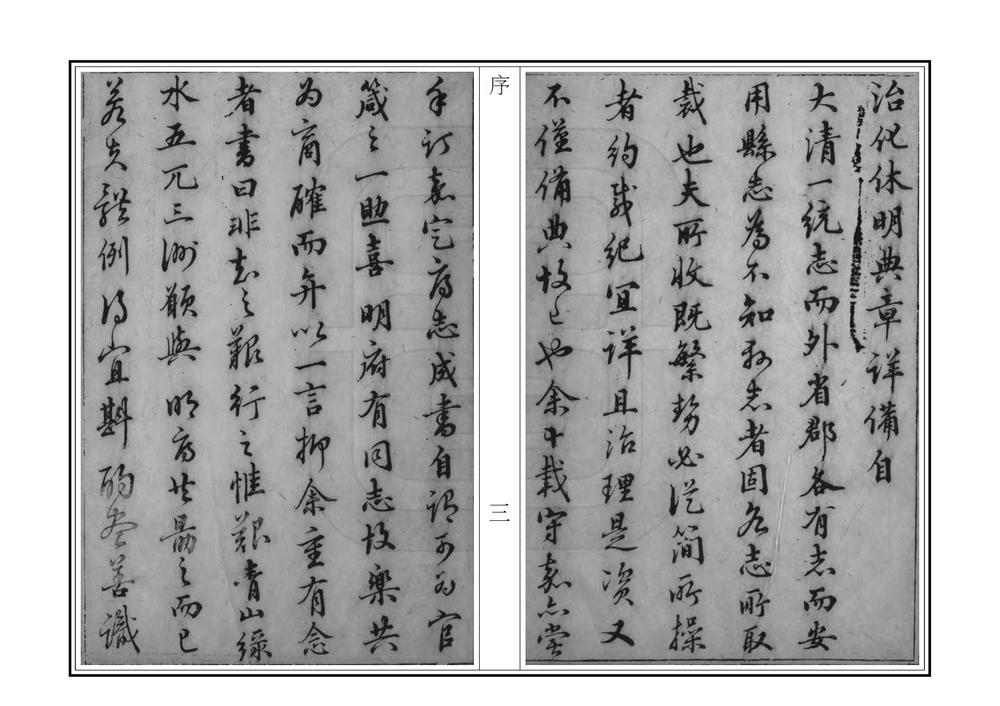 治化休明典章詳備自
大清一統志而外省郡各有志而安
用縣志為不知郡志者固各志所取
裁也夫所收既繁勢必從簡所操
者約載紀宜詳且治理是資又
不僅備典故已也余十載守嘉亦嘗
序
三
手訂嘉定府志成書自謂可為官
箴之一助喜明府有同志故樂共
為商確而弁以一言抑余重有念
者書曰非知之艱行之惟艱青山綠
水五兀三洲願與明府共勗之而已
若夫體例得宜斟酌盡善識